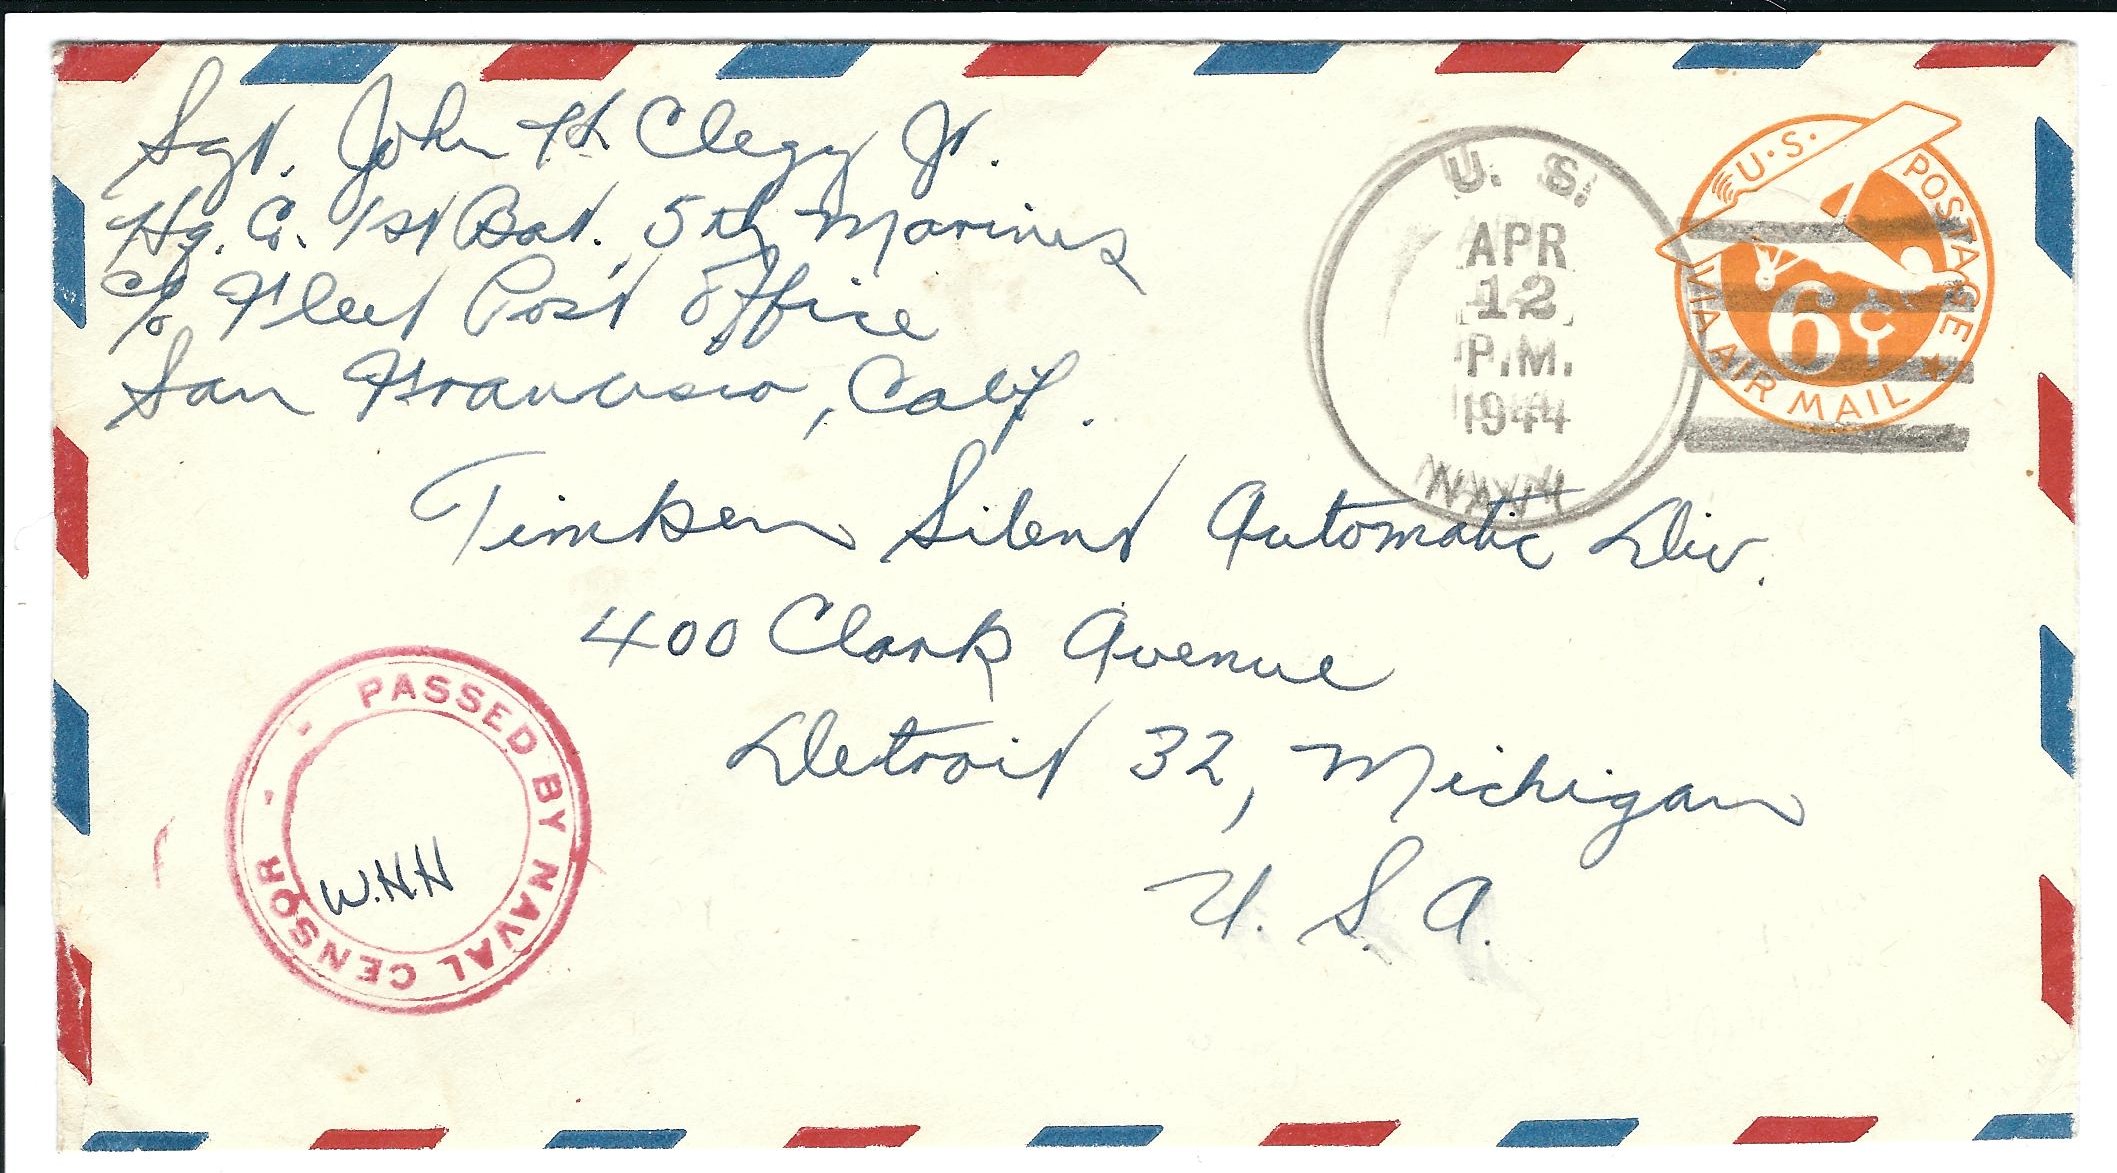 Sgt. John H Clegg Jr.
Hq. Co. 1st Bat. 5th Marines
c/o Fleet Post Office
San Francisco, Calif.
U. S.
APR
12
P.M.
1944
NAVY
U.S. POSTAGE
6¢
VIA AIR MAIL
Timken Silent Automatic Div.
400 Clark Avenue
Detroit 32, Michigan
U. S. A.
PASSED BY NAVAL CENSOR
W.H.H